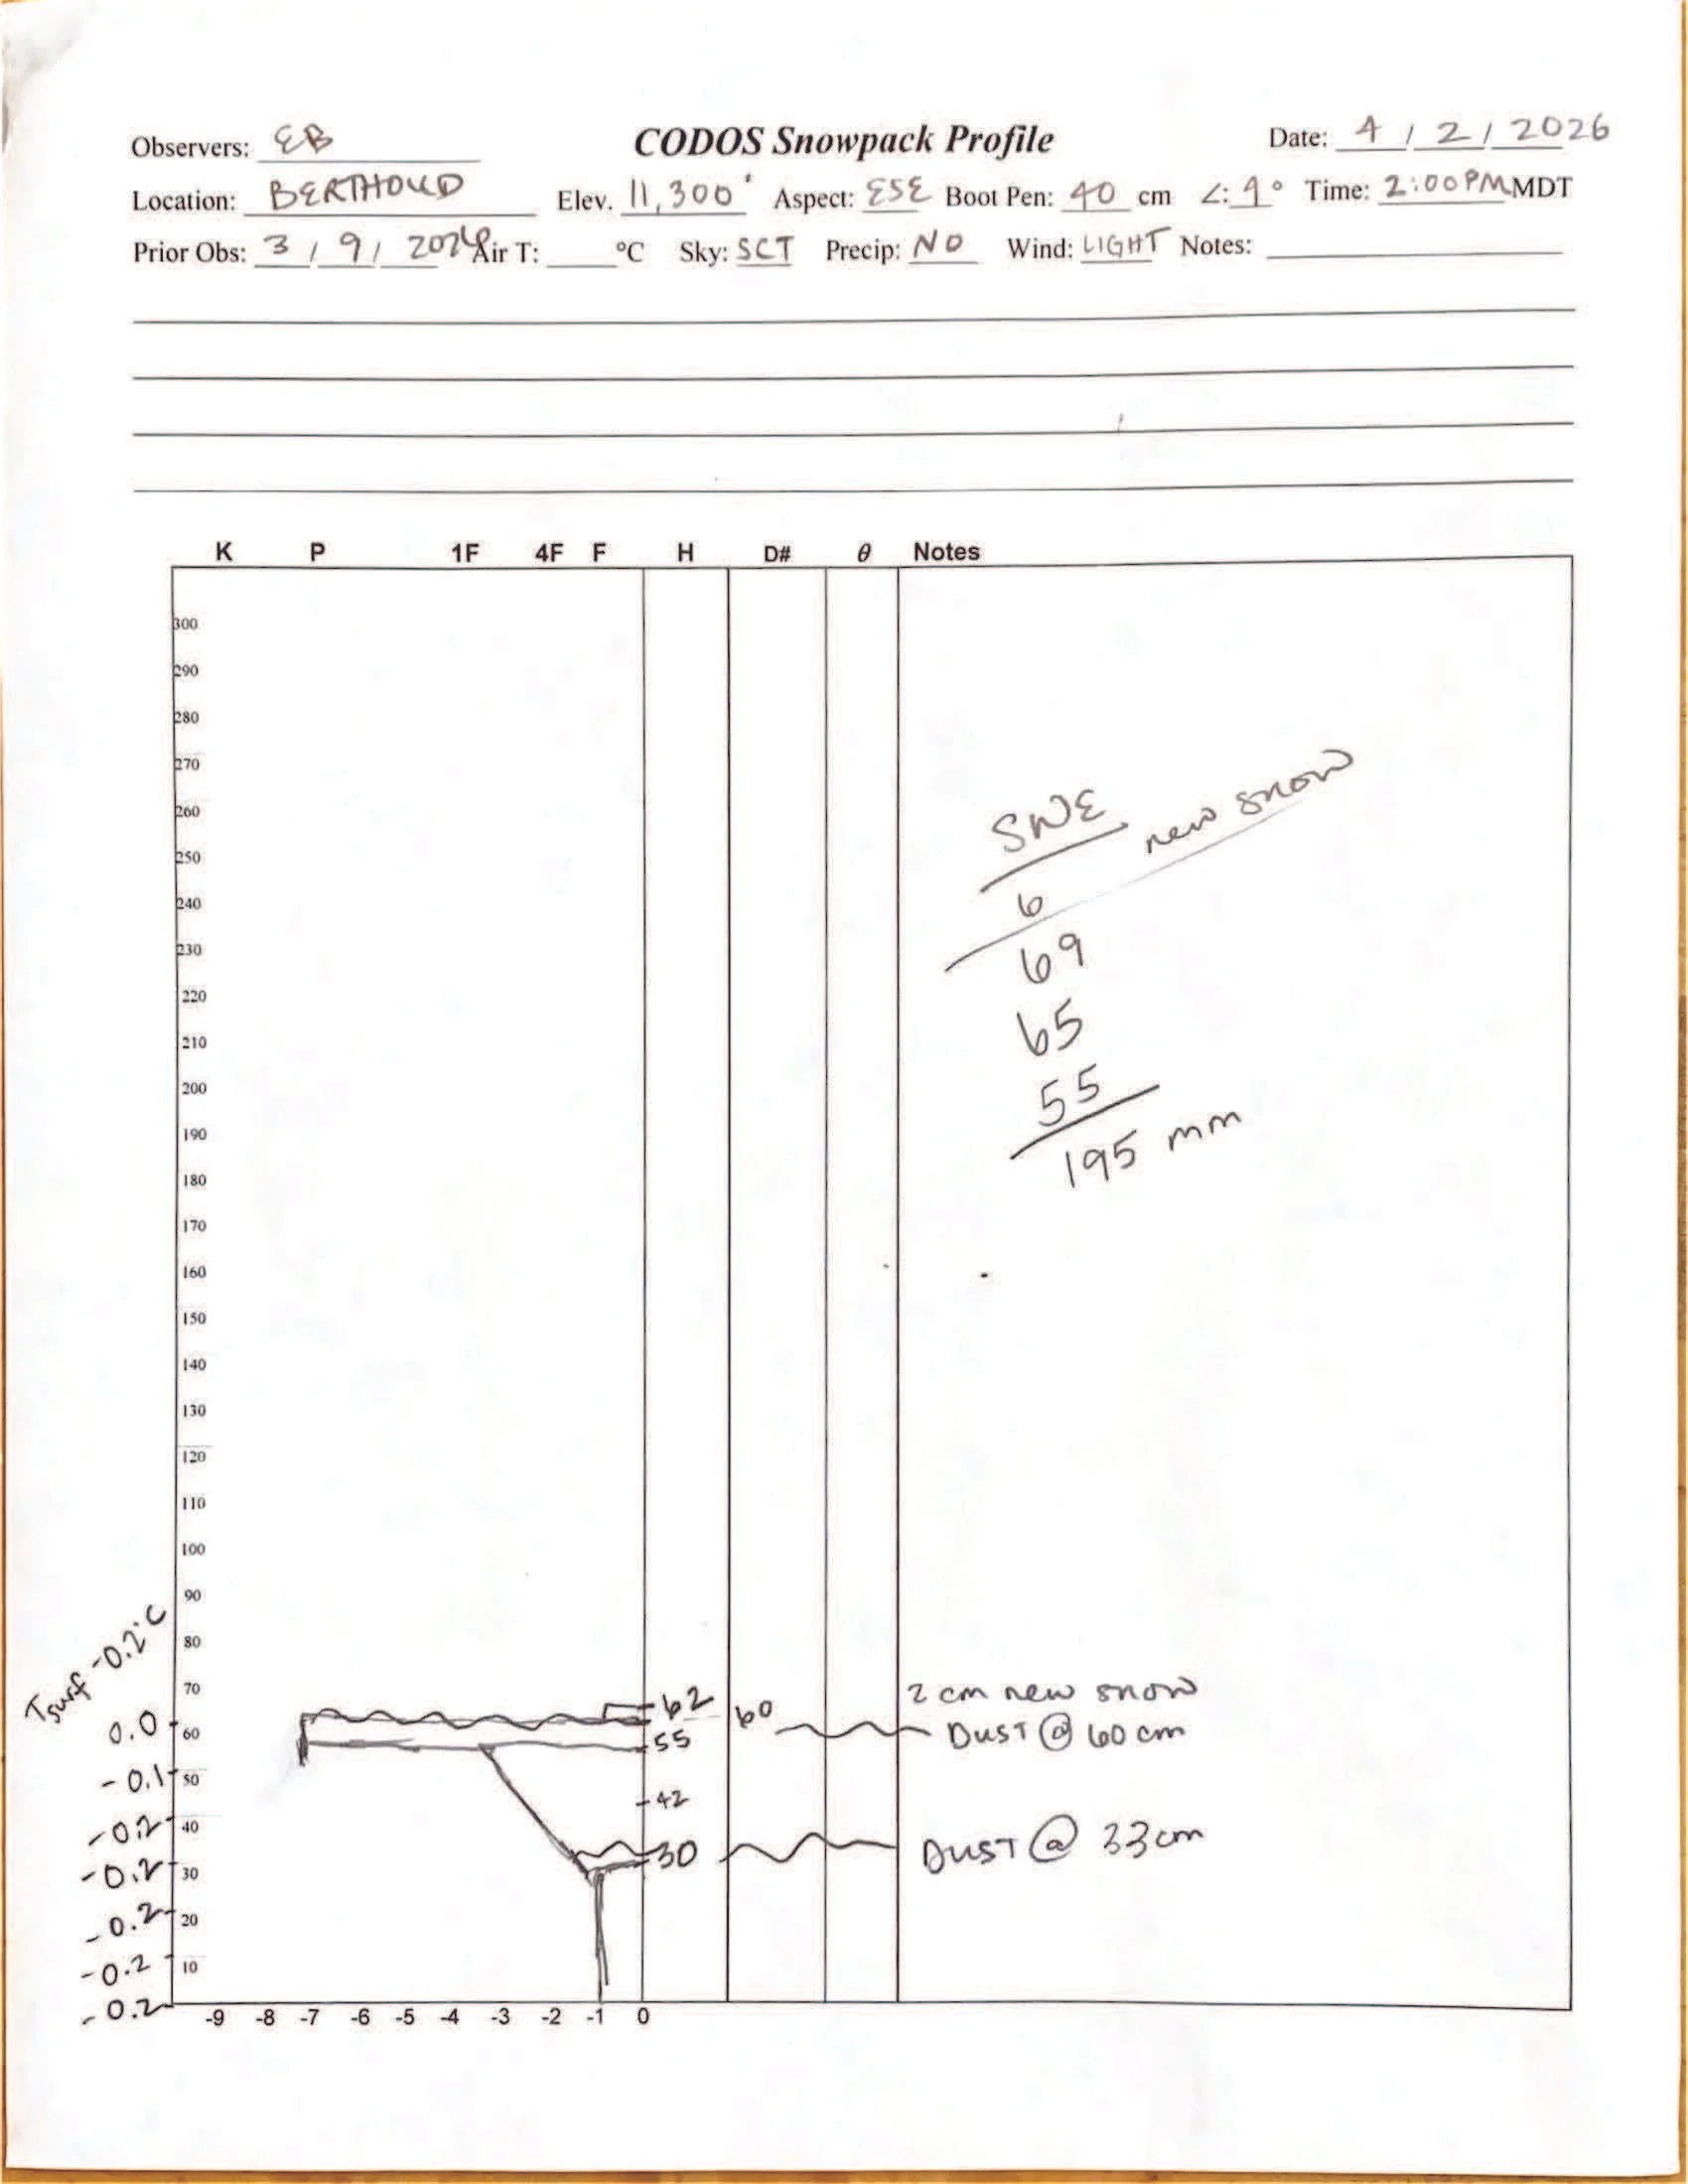 CODOS Snowpack Profile
Observers: EB Date: 4 / 2 / 2026
Location: BERTHOUD Elev. 11,300' Aspect: ESE Boot Pen: 40 cm ∠: 9° Time: 2:00PM MDT
Prior Obs: 3 / 9 / 2026 Air T: ____ °C Sky: SCT Precip: NO Wind: LIGHT Notes:
K P 1F 4F F H D# θ Notes
300
290
280
270
260
250
240
230
220
210
200
190
180
170
160
150
140
130
120
110
100
90
80
70
60
50
40
30
20
10
SWE
6 new snow
69
65
55
195 mm
Tsurf -0.2°C
0.0
-0.1
-0.2
-0.2
-0.2
-0.2
-0.2
62
55
42
30
60
2 cm new snow
DUST @ 60 cm
DUST @ 33cm
-9 -8 -7 -6 -5 -4 -3 -2 -1 0